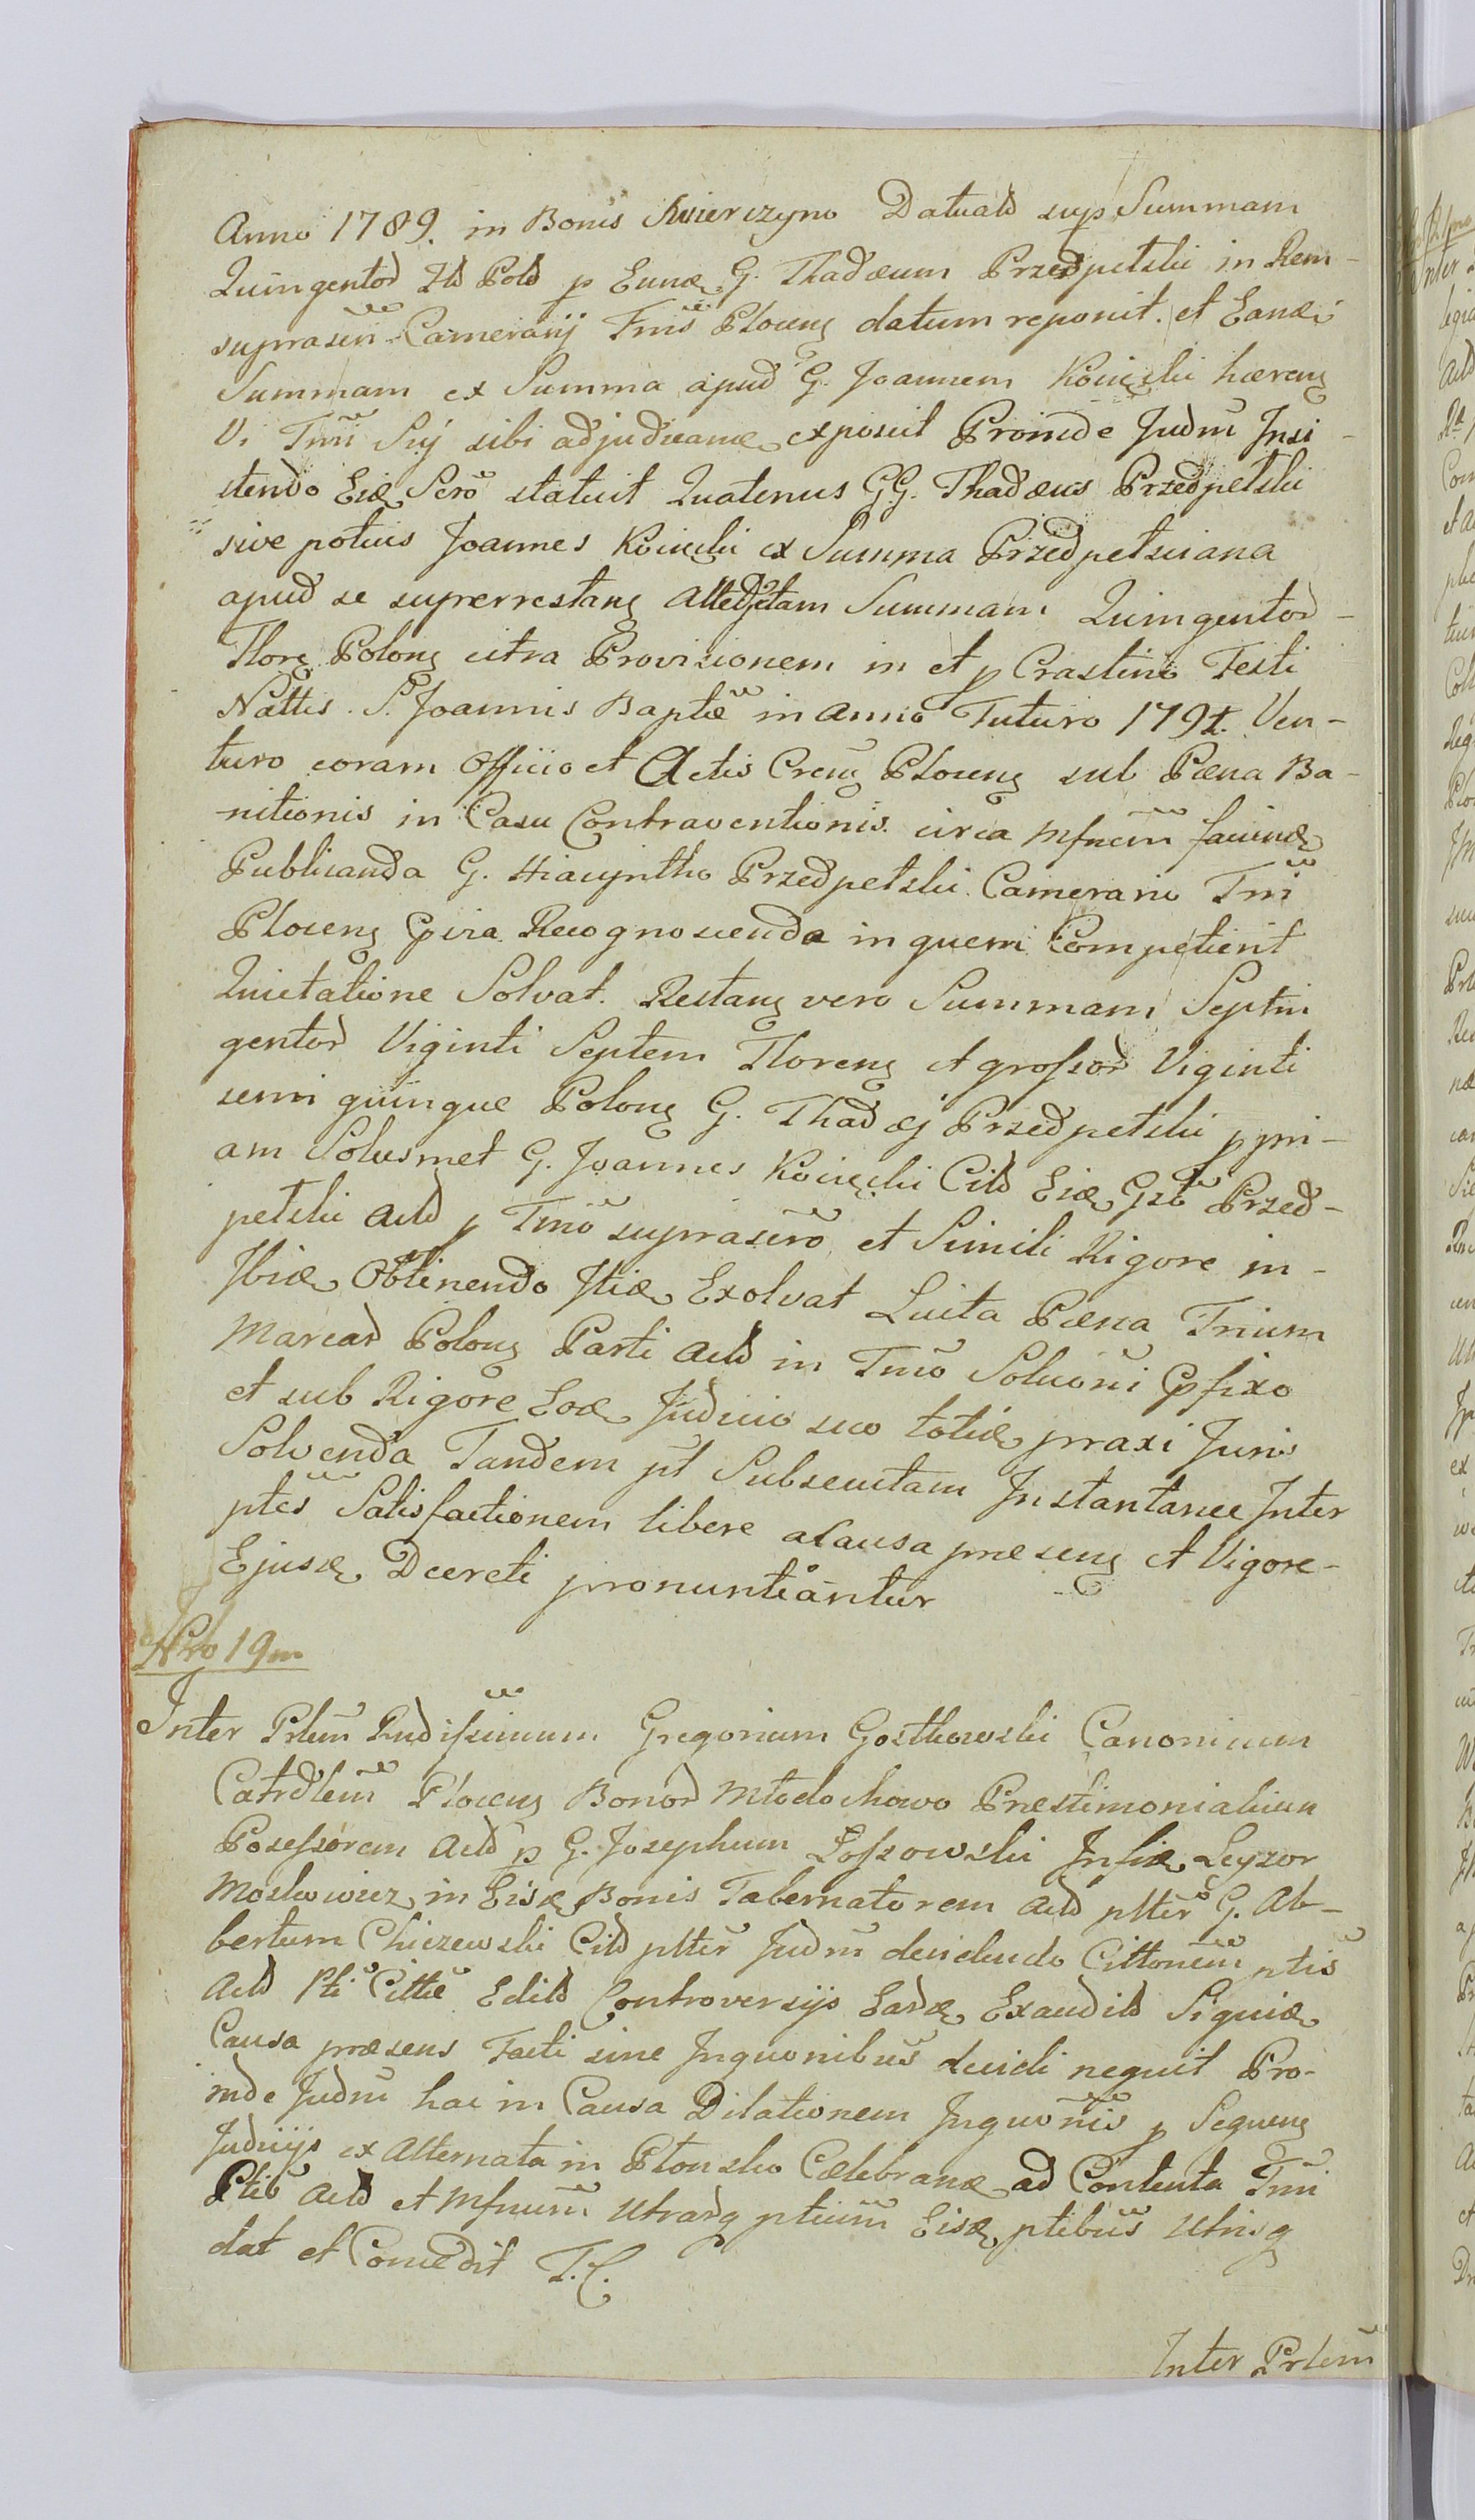 Anno 1789. in Bonis Swierczyno Datuald sup Summam
Quingentod Zld Pold p Eunæ G. Thadæum Przedpełski in Rem-
suprasen Camerarij Tmis Plocens datum reponit. et Eanæ
Summam ex Summa apud G. Joannem Koiucki hærens
Vi Tmi Sij sibi adjudicanæ exposuit Proinde Judm Insi-
stendo Eiæ Sero statuit Quatenus GG. Thadæus Przedpełski
sive potius Joannes Koiucki ex Summa Przedpełsciana
apud se superrestans Summam Quingentod-
Flore Polons citra Provisionem in et p Crastino Festi
Nattis. S. Joannis Baptæ in anno Futuro 1791. Ven-
turo coram Officio et Actis Crens Plocens sub Pæna Ba-
nitionis in Casu Contraventionis circa Mfncm faciend
Publicanda G. Hiacyntho Przedpełski Camerario Tmi
Plocens Recognoscenda in quem Competierit
Quietatione Solvat. Restans vero Summam Septin
gentod Viginti Septem Florens et grossod Viginti
semi quinque Polons G. Thadæj Przedpełski ppri-
am Solusmet G. Joannes Koiucki Citd Eiæ Gso Przed-
pełski Actd p Tmo suprascro et Simili Rigore in-
Ibiæ Obtinendo Itiæ Exolvat Luita Pæna Trium
Marcad Polons Parti Actd in Tmo Soluoni Cpfixo
et sub Rigore Eoæ Judicio suo totiæ praxi Juris
Solvenda Tandem pt Subsecutam Instantanee Inter
ptes Satisfactionem libere a Causa præsens et Vigore-
Ejusæ Decreti pronuntiantur
Nro 19m
Inter Prlem Rndissimum Gregorium Gostkowski Canonicum
Catrdlem Plocens Bonod Młodochowo Præstimonialium
Posessorem Actd p G. Josephum Lossowski Infiæ Leyzor
Moskowicz in Eisæ Bonis Tabernatorem Actd plter G. Al-
bertum Chiczewski Citd plter Judm decidendo Cittonem ptis
Actd Pti Cittæ Editd Controversijs Eadæ Exauditd Siquiæ
Causa præsens Facti sine Inquonibus decidi nequit Pro-
inde Judm hac in Causa Dilationem Inquonis p Sequens
Judicijs ex Alternata in Płonsko Cælebranæ ad Contenta Tmi
Ptib Actd et Mfnum Utradq ptium Eisæ ptibus Utrisq
dat et Concedit T.C.
Inter Prlem